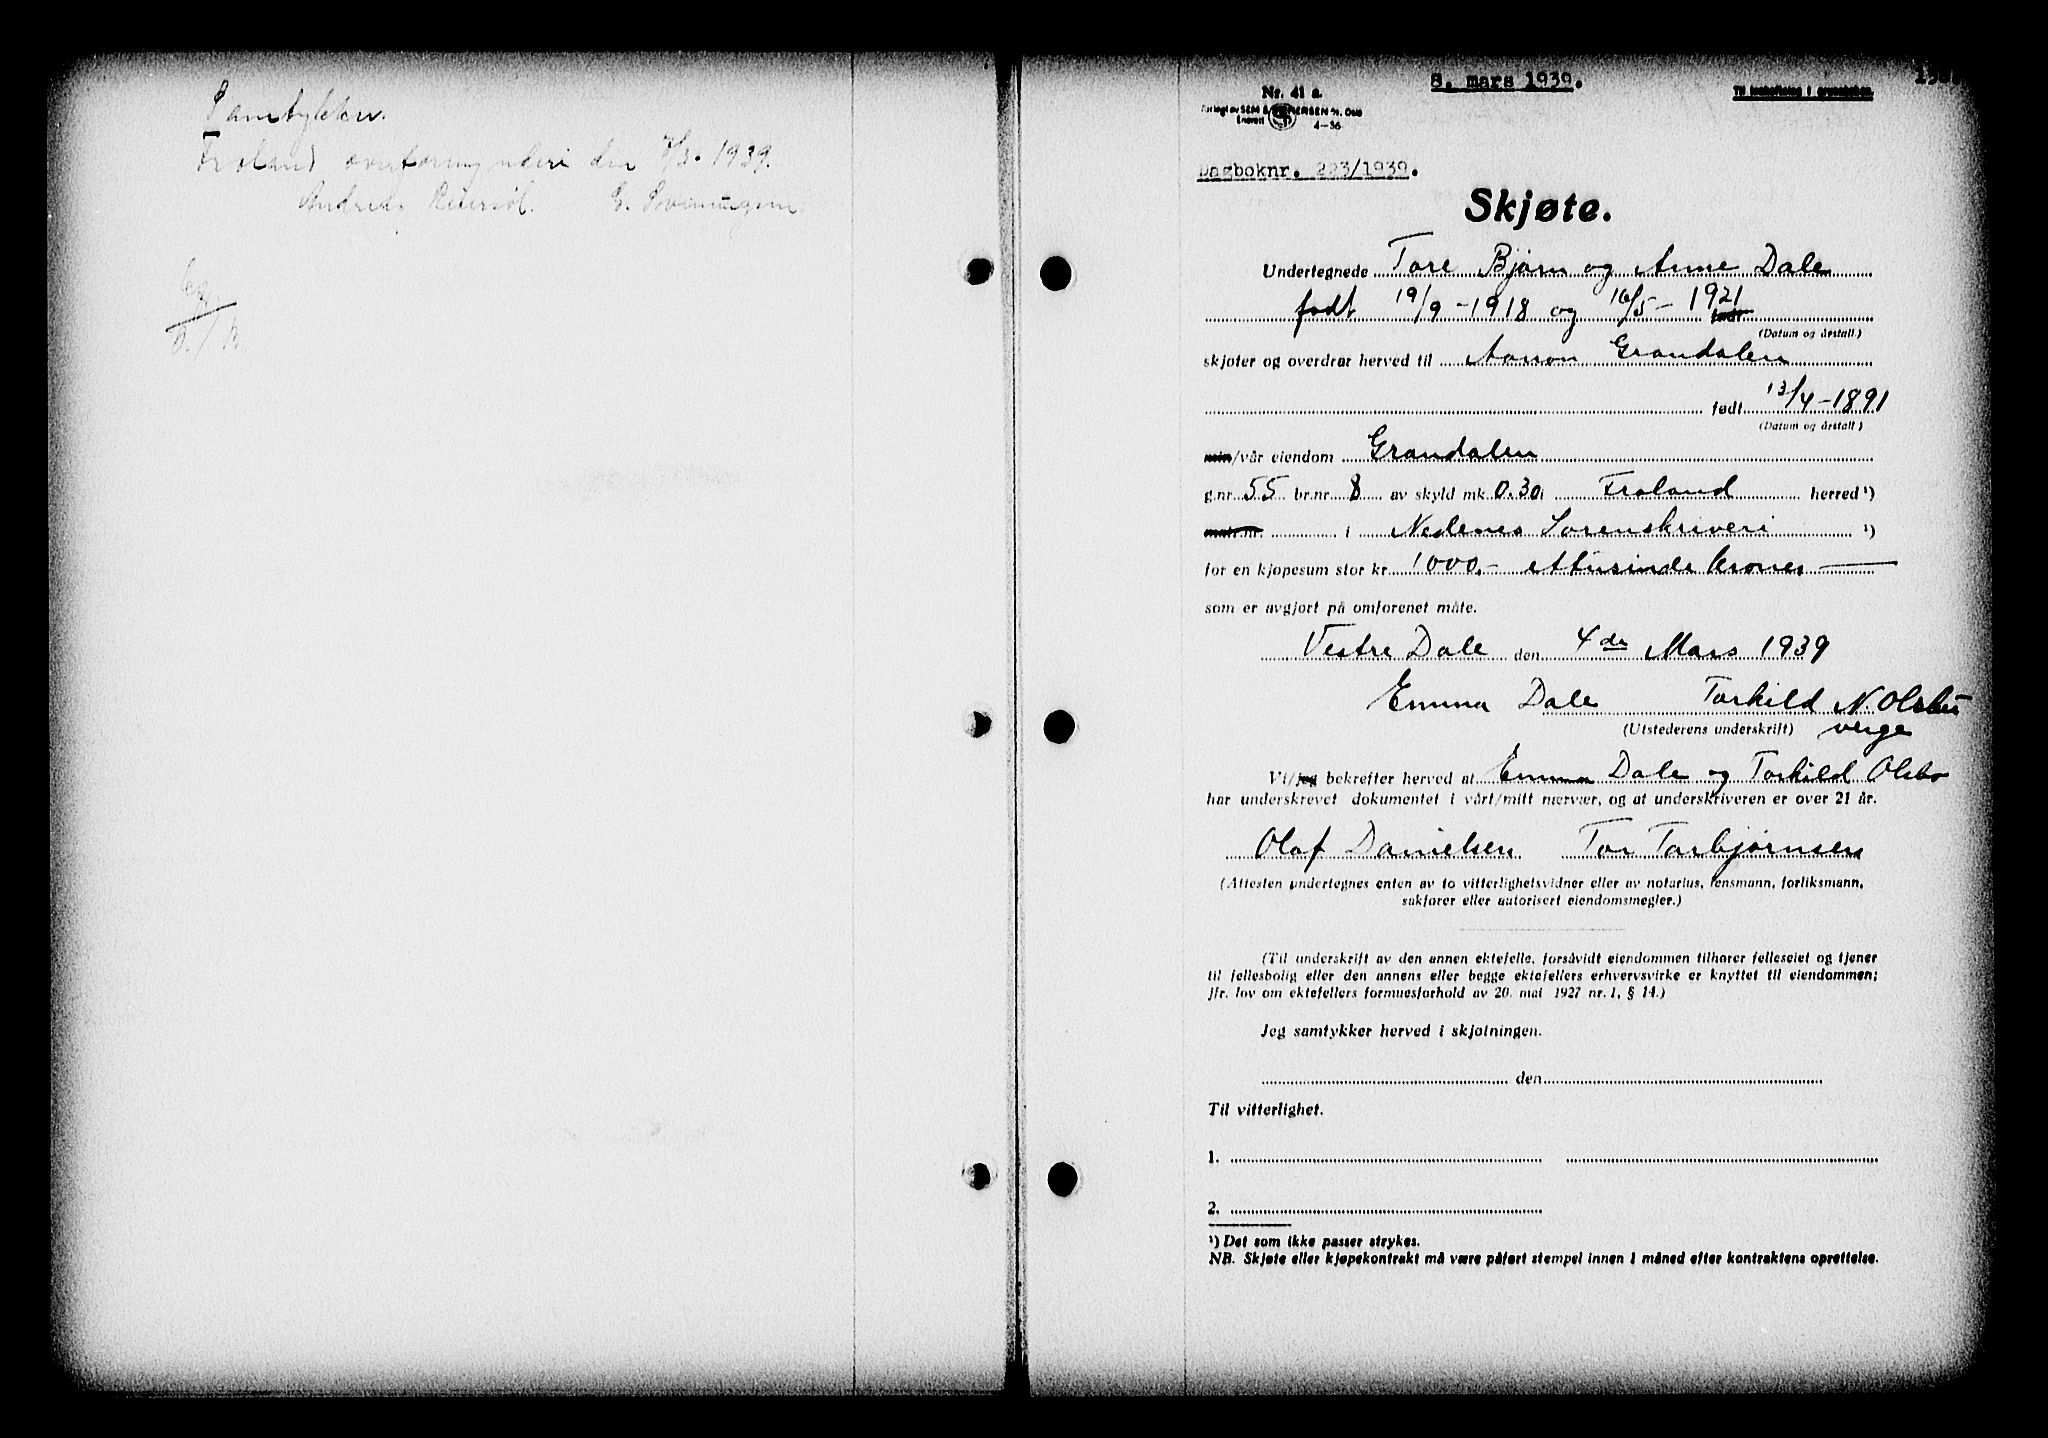 Samtykker.
Froland overformynderi den 7/3. 1939.
Andreas
8. mars 1939.
Nr. 41 a.
Til innheftning i grunnboken.
4-36
Dagboknr. 223/1939.
Skjøte.
Undertegnede Tore Bjørn og Anne Dale
født 19/9-1918 og 16/5-1921
(Datum og årstall.)
skjøter og overdrar herved til Aanon Grandalen
født 13/4-1891
(Datum og årstall)
min/vår eiendom Grandalen
g.nr. 55 br.nr. 8 av skyld mk. 0.30 i Froland herred ¹)
matr.nr. i Nedenes Sorenskriveri ¹)
for en kjøpesum stor kr. 1000,- ettusinde kroner
som er avgjort på omforenet måte.
Vestre Dale den 4de Mars 1939
Emma Dale Torkild N. Olsbu
(Utstederens underskrift) verge
Vi/jeg bekrefter herved at Emma Dale og Torkild Olsbo
har underskrevet dokumentet i vårt/mitt nærvær, og at underskriveren er over 21 år.
Olaf Danielsen Tor Torbjørnsen
(Attesten undertegnes enten av to vitterlighetsvidner eller av notarius, lensmann, forliksmann,
sakfører eller autorisert eiendomsmegler.)
(Til underskrift av den annen ektefelle, forsåvidt eiendommen tilhører felleseiet og tjener
til fellesbolig eller den annens eller begge ektefellers erhvervsvirke er knyttet til eiendommen;
jfr. lov om ektefellers formuesforhold av 20. mai 1927 nr. 1, § 14.)
Jeg samtykker herved i skjøtningen.
den
Til vitterlighet.
1.
2.
¹) Det som ikke passer strykes.
NB. Skjøte eller kjøpekontrakt må være påført stempel innen 1 måned efter kontraktens oprettelse.